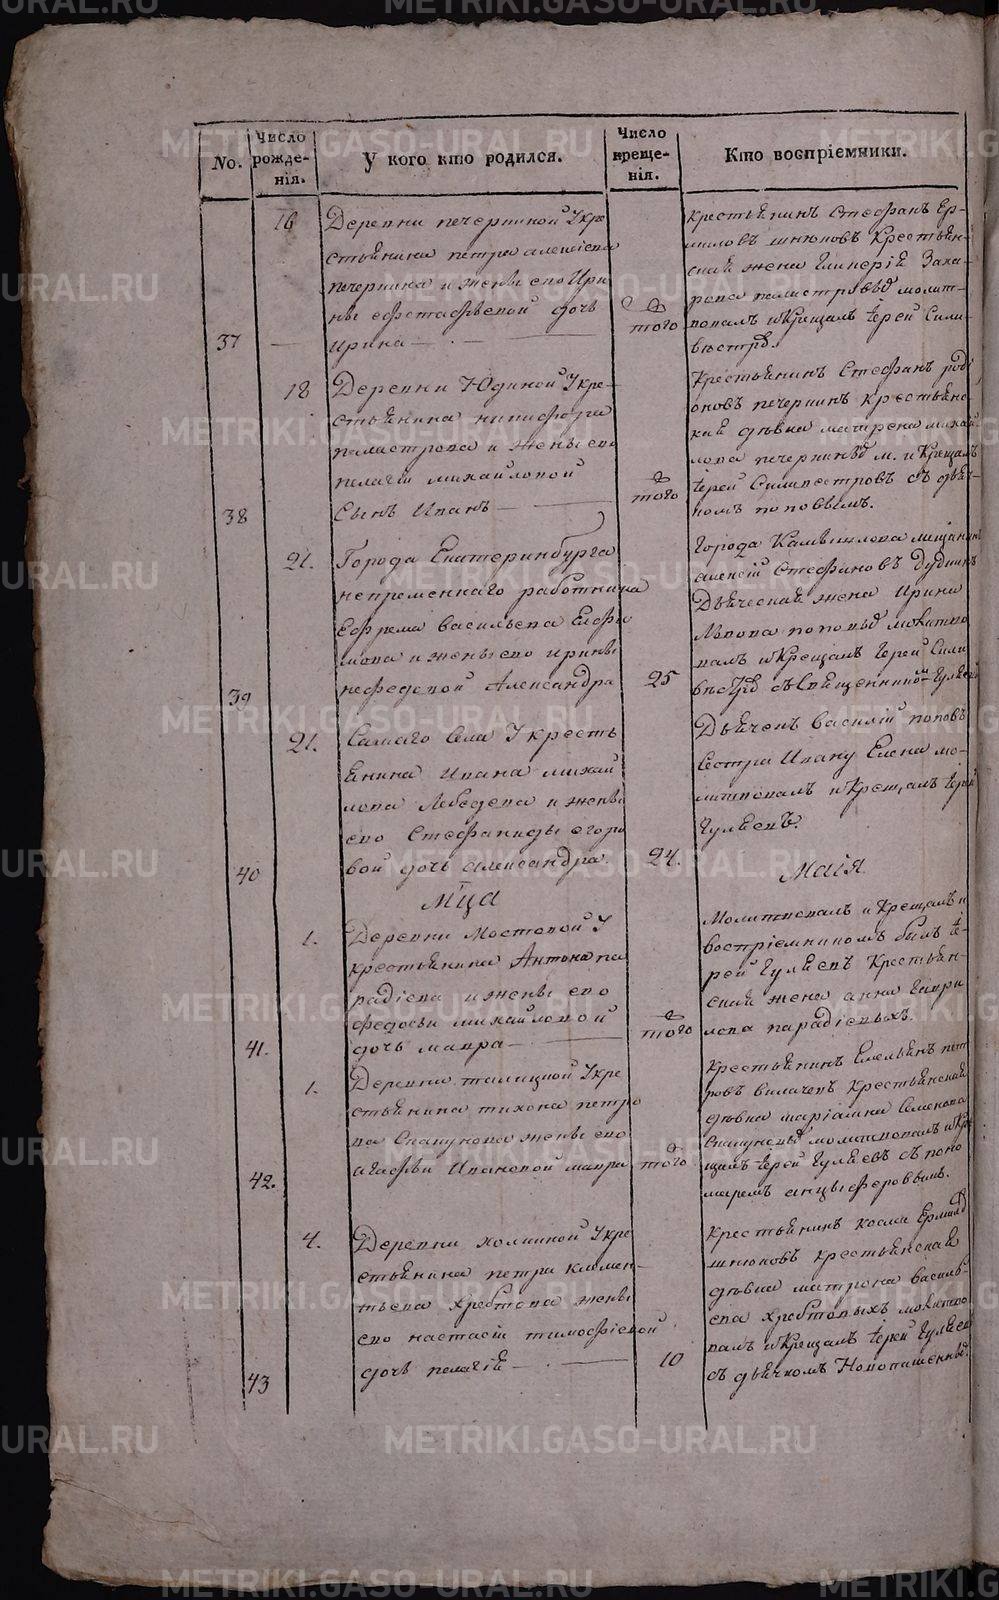 No.
Число рожде-нія.
У кого кто родился.
Число креще-нія.
Кто воспріемники.
37
16
Деревни печеркиной У кре
стьянина петра алексіева
печеркина и жены его Ири
ны ефстафьевой дочь
Ирина
того
крестьянинъ Стефанъ Ер-
миловъ шнюковъ Крестьян-
ская жена Гликерія Заха-
рова молит-
вовалъ и Крещалъ Іерей Сили-
вестръ.
38
18
Деревни Юдиной У кре-
стьянина никифора
пелагіи михайловой
Сынъ Иванъ
того
Крестьянинъ Стефанъ роді
оновъ печеркинъ крестьянс-
кая девка матрена михай
лова печеркина м. и Крещалъ
Іерей Силивестровъ съ дьяч-
комъ поповымъ.
39
21.
Города Екатеринбурга
непременнаго работника
Ефрема васильева Елфи
мова и жены его ирины
нефедовой Александра
25
города Камышлова мещанинъ
алексій Стефановъ Дудинъ
Дьяческая жена Ирина
Львова попова молитво
валъ и Крещалъ Іерей Сили
вестръ съ Священникомъ Гуляевъ
40
21.
Самаго Села У кресть
янина Ивана михай
лова Лебедева и жены
его Стефаниды егоро
вой дочь александра.
24.
Дьяченъ василій поповъ
Сестра Ивану Елена мо-
литвовалъ и Крещалъ Іерей
Гуляевъ.
Мца
Маія
41.
1.
Деревни Мостовой У
крестьянина Антона па
радіева и жены его
федосьи михайловой
дочь мавра
того
Молитвовалъ и Крещалъ и
воспріемникомъ былъ Іе-
рей Гуляевъ Крестьян-
ская жена анна Гаври
лова парадіевыхъ.
42.
1.
Деревни талицкой У кре
стьянина тихона петро
ва жены его
агафьи Ивановой мавра
того
крестьянинъ Емельянъ пет
ровъ Крестьянская
девка маріамна Семенова
молитвовалъ и Кре
щалъ Іерей Гуляевъ съ поно
маремъ анцыферовымъ.
43
4.
Деревни У кре
стьянина петра климен-
тьева Хребтова жены
его настасіи тимофіевой
дочь пелагія
10
крестьянинъ косма Ермила
шнюковъ крестьянская
девка матрона василь-
ева хребтовыхъ молитво
валъ и Крещалъ Іерей Гуляевъ
съ дьячкомъ Новопашенны.
METRIKI.GASO-URAL.RU